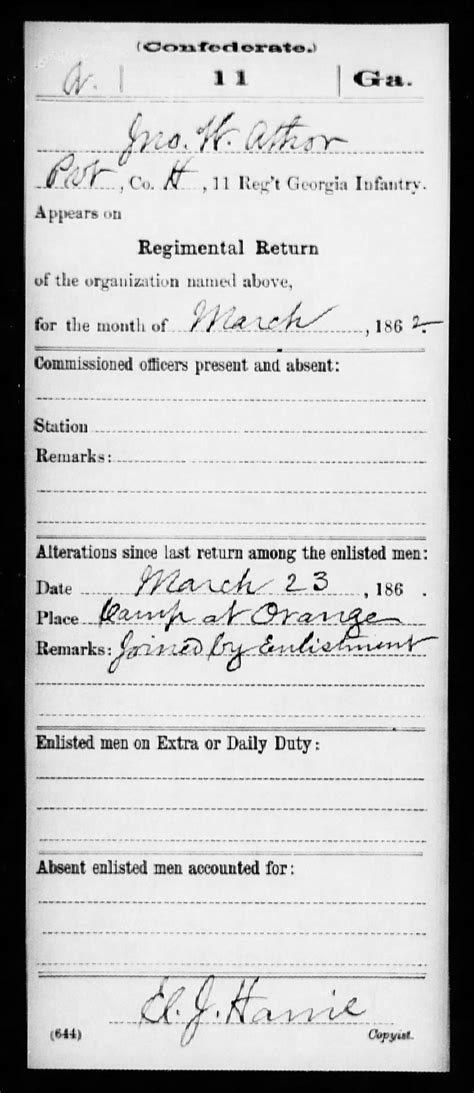 (Confederate.)
A. | 11 | Ga.
Jno. W. Athor
Pvt, Co. H, 11 Reg't Georgia Infantry.
Appears on
Regimental Return
of the organization named above,
for the month of March, 1862.
Commissioned officers present and absent:
Station
Remarks:
Alterations since last return among the enlisted men:
Date March 23, 186 .
Place Camp at Orange
Remarks: Joined by Enlistment
Enlisted men on Extra or Daily Duty:
Absent enlisted men accounted for:
El. J. Harrie
(644) Copyist.